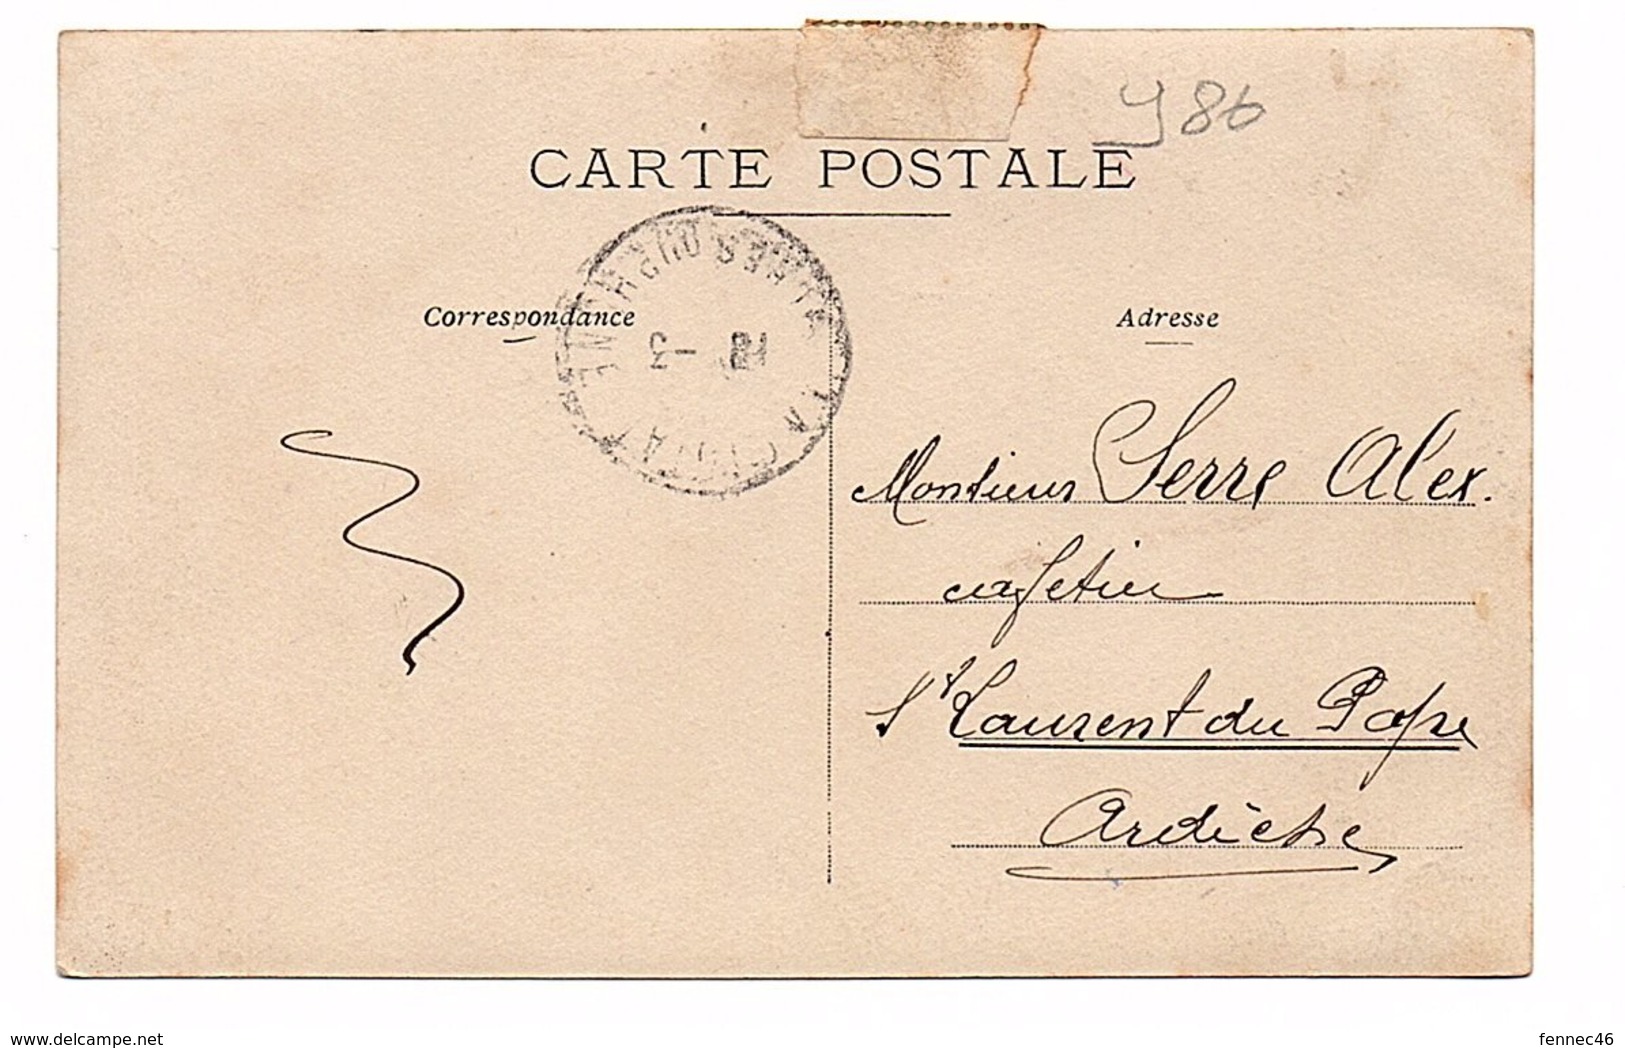 y86
CARTE POSTALE
Correspondance
Adresse
LA CIOTAT
BOUCHES DU RHONE
Monsieur Serre Alex.
cafetier
St Laurent du Pape
Ardèche
www.delcampe.net
fennec46